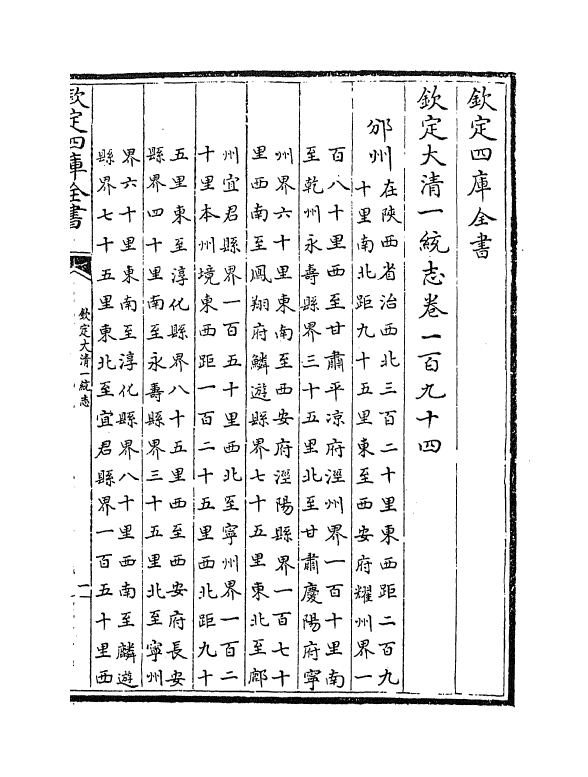 欽定四庫全書
欽定大清一統志卷一百九十四
邠州
在陝西省治西北三百二十里東西距二百九
十里南北距九十五里東至西安府耀州界一
百八十里西至甘肅平凉府涇州界一百十里南
至乾州永壽縣界三十五里北至甘肅慶陽府寧
州界六十里東南至西安府涇陽縣界一百七十
里西南至鳳翔府鱗遊縣界七十五里東北至鄜
州宜君縣界一百五十里西北至寧州界一百二
十里本州境東西距一百二十五里西北距九十
五里東至淳化縣界八十五里西至西安府長安
縣界四十里南至永壽縣界三十五里北至寧州
界六十里東南至淳化縣界八十里西南至麟遊
縣界七十五里東北至宜君縣界一百五十里西
欽定四庫全書
欽定大清一統志
一